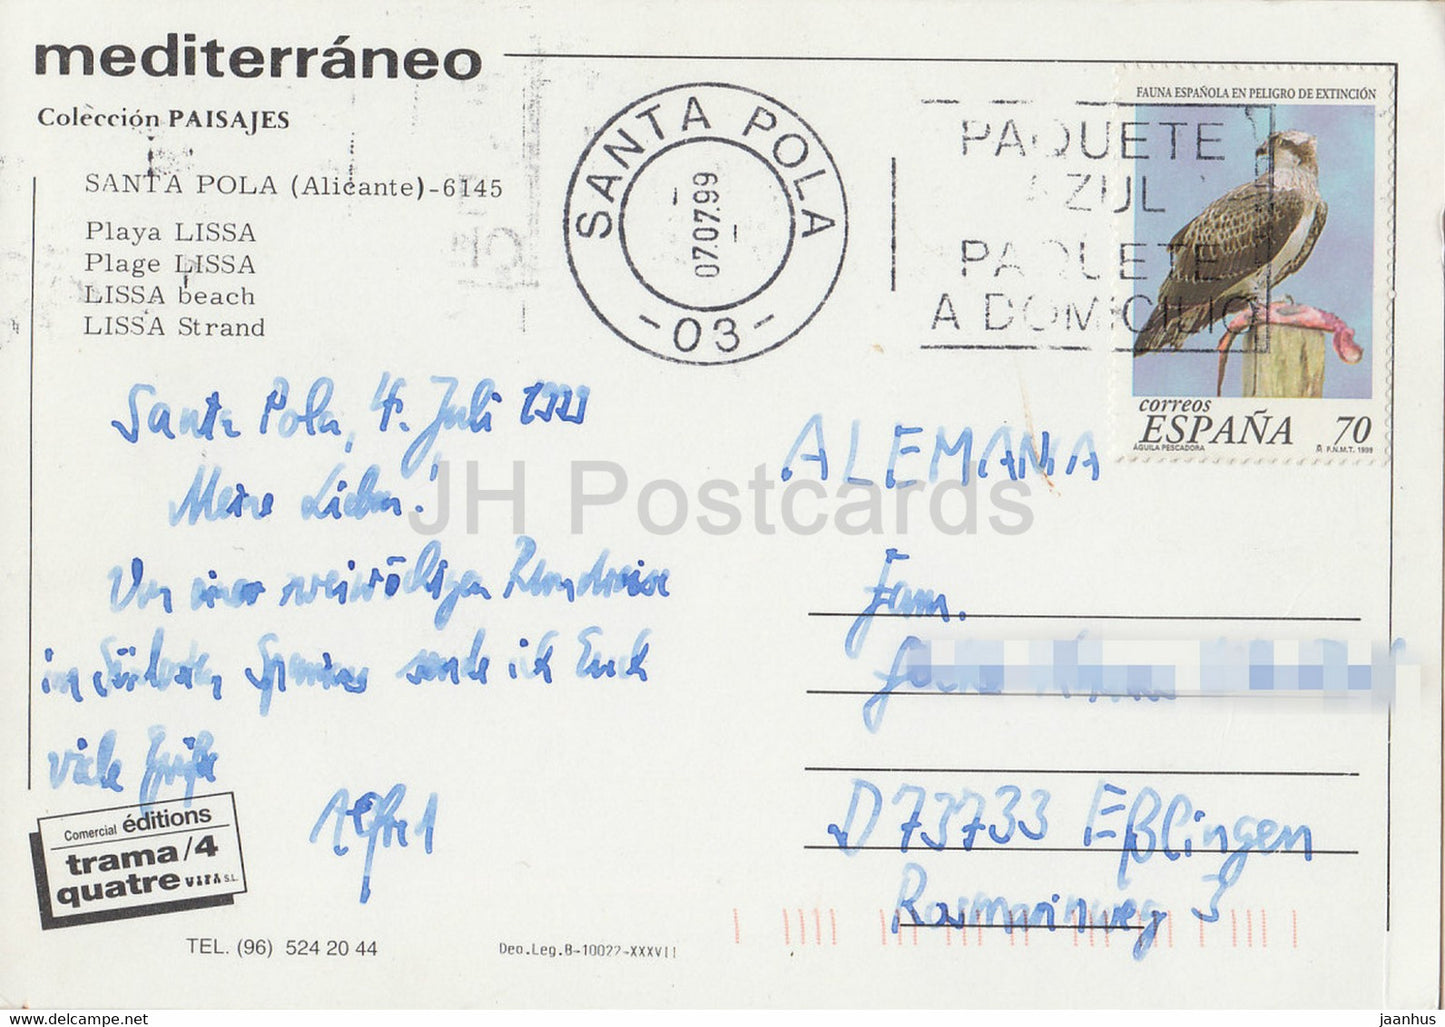 mediterráneo
Colección PAISAJES
SANTA POLA (Alicante)-6145
Playa LISSA
Plage LISSA
LISSA beach
LISSA Strand
SANTA POLA
07.07.99
-03-
PAQUETE
AZUL
PAQUETE
A DOMICILIO
FAUNA ESPAÑOLA EN PELIGRO DE EXTINCIÓN
correos
ESPAÑA 70
ÁGUILA PESCADORA F.N.M.T. 1999
Santa Pola, 4. Juli 1999
Meine Lieben!
Von einer zweiwöchigen Rundreise
im Südosten Spaniens sende ich Euch
viele Grüße
Alfred
ALEMANIA
Fam.
D 73733 Eßlingen
Rosmarinweg 3
Comercial éditions
trama/4
quatre VIFA S.L.
TEL. (96) 524 20 44
Deo.Leg.B-10022-XXXVII
JH Postcards
www.delcampe.net
jaanhus